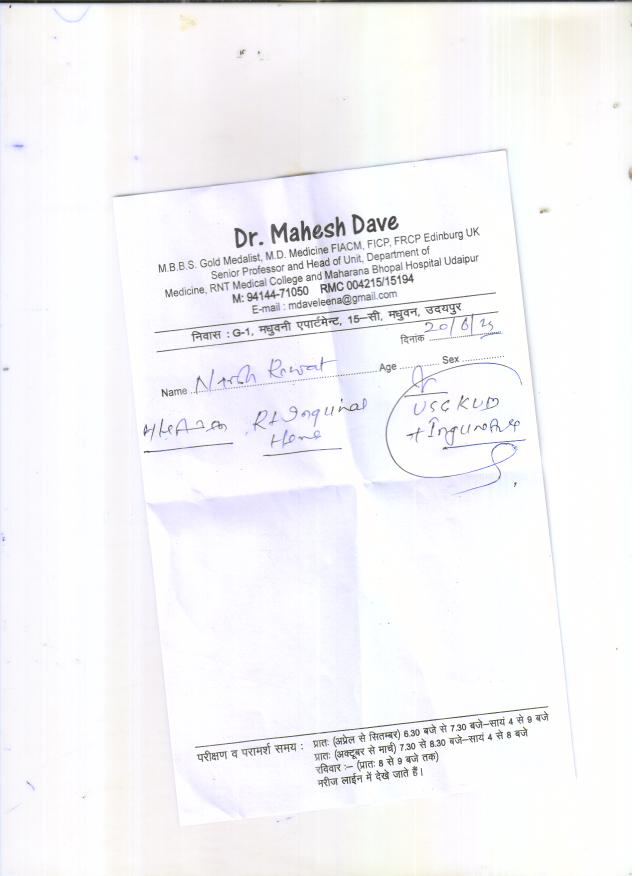 Dr. Mahesh Dave
M.B.B.S. Gold Medalist, M.D. Medicine FIACM, FICP, FRCP Edinburg UK
Senior Professor and Head of Unit, Department of
Medicine, RNT Medical College and Maharana Bhopal Hospital Udaipur
M: 94144-71050 RMC 004215/15194
E-mail : mdaveleena@gmail.com
निवास : G-1, मधुवनी एपार्टमेन्ट, 15–सी, मधुवन, उदयपुर
दिनांक 20/6/25
Name Rawat Age Sex
Rt Inguinal
USG KUB
+ Inguinal
परीक्षण व परामर्श समय : प्रातः (अप्रेल से सितम्बर) 6.30 बजे से 7.30 बजे–सायं 4 से 9 बजे
प्रातः (अक्टूबर से मार्च) 7.30 से 8.30 बजे–सायं 4 से 8 बजे
रविवार :– (प्रातः 8 से 9 बजे तक)
मरीज लाईन में देखे जाते हैं।